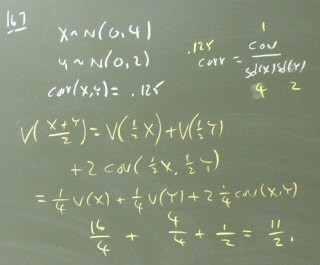 167
X ~ N(0,4)
Y ~ N(0,2)
corr(X,Y) = .125
.125
corr = cov / sd(X)sd(Y)
1
4 2
V(X+Y / 2) = V(½X) + V(½Y)
+ 2 cov(½X, ½Y)
= ¼ V(X) + ¼ V(Y) + 2 ¼ cov(X,Y)
16/4 + 4/4 + 1/2 = 11/2.